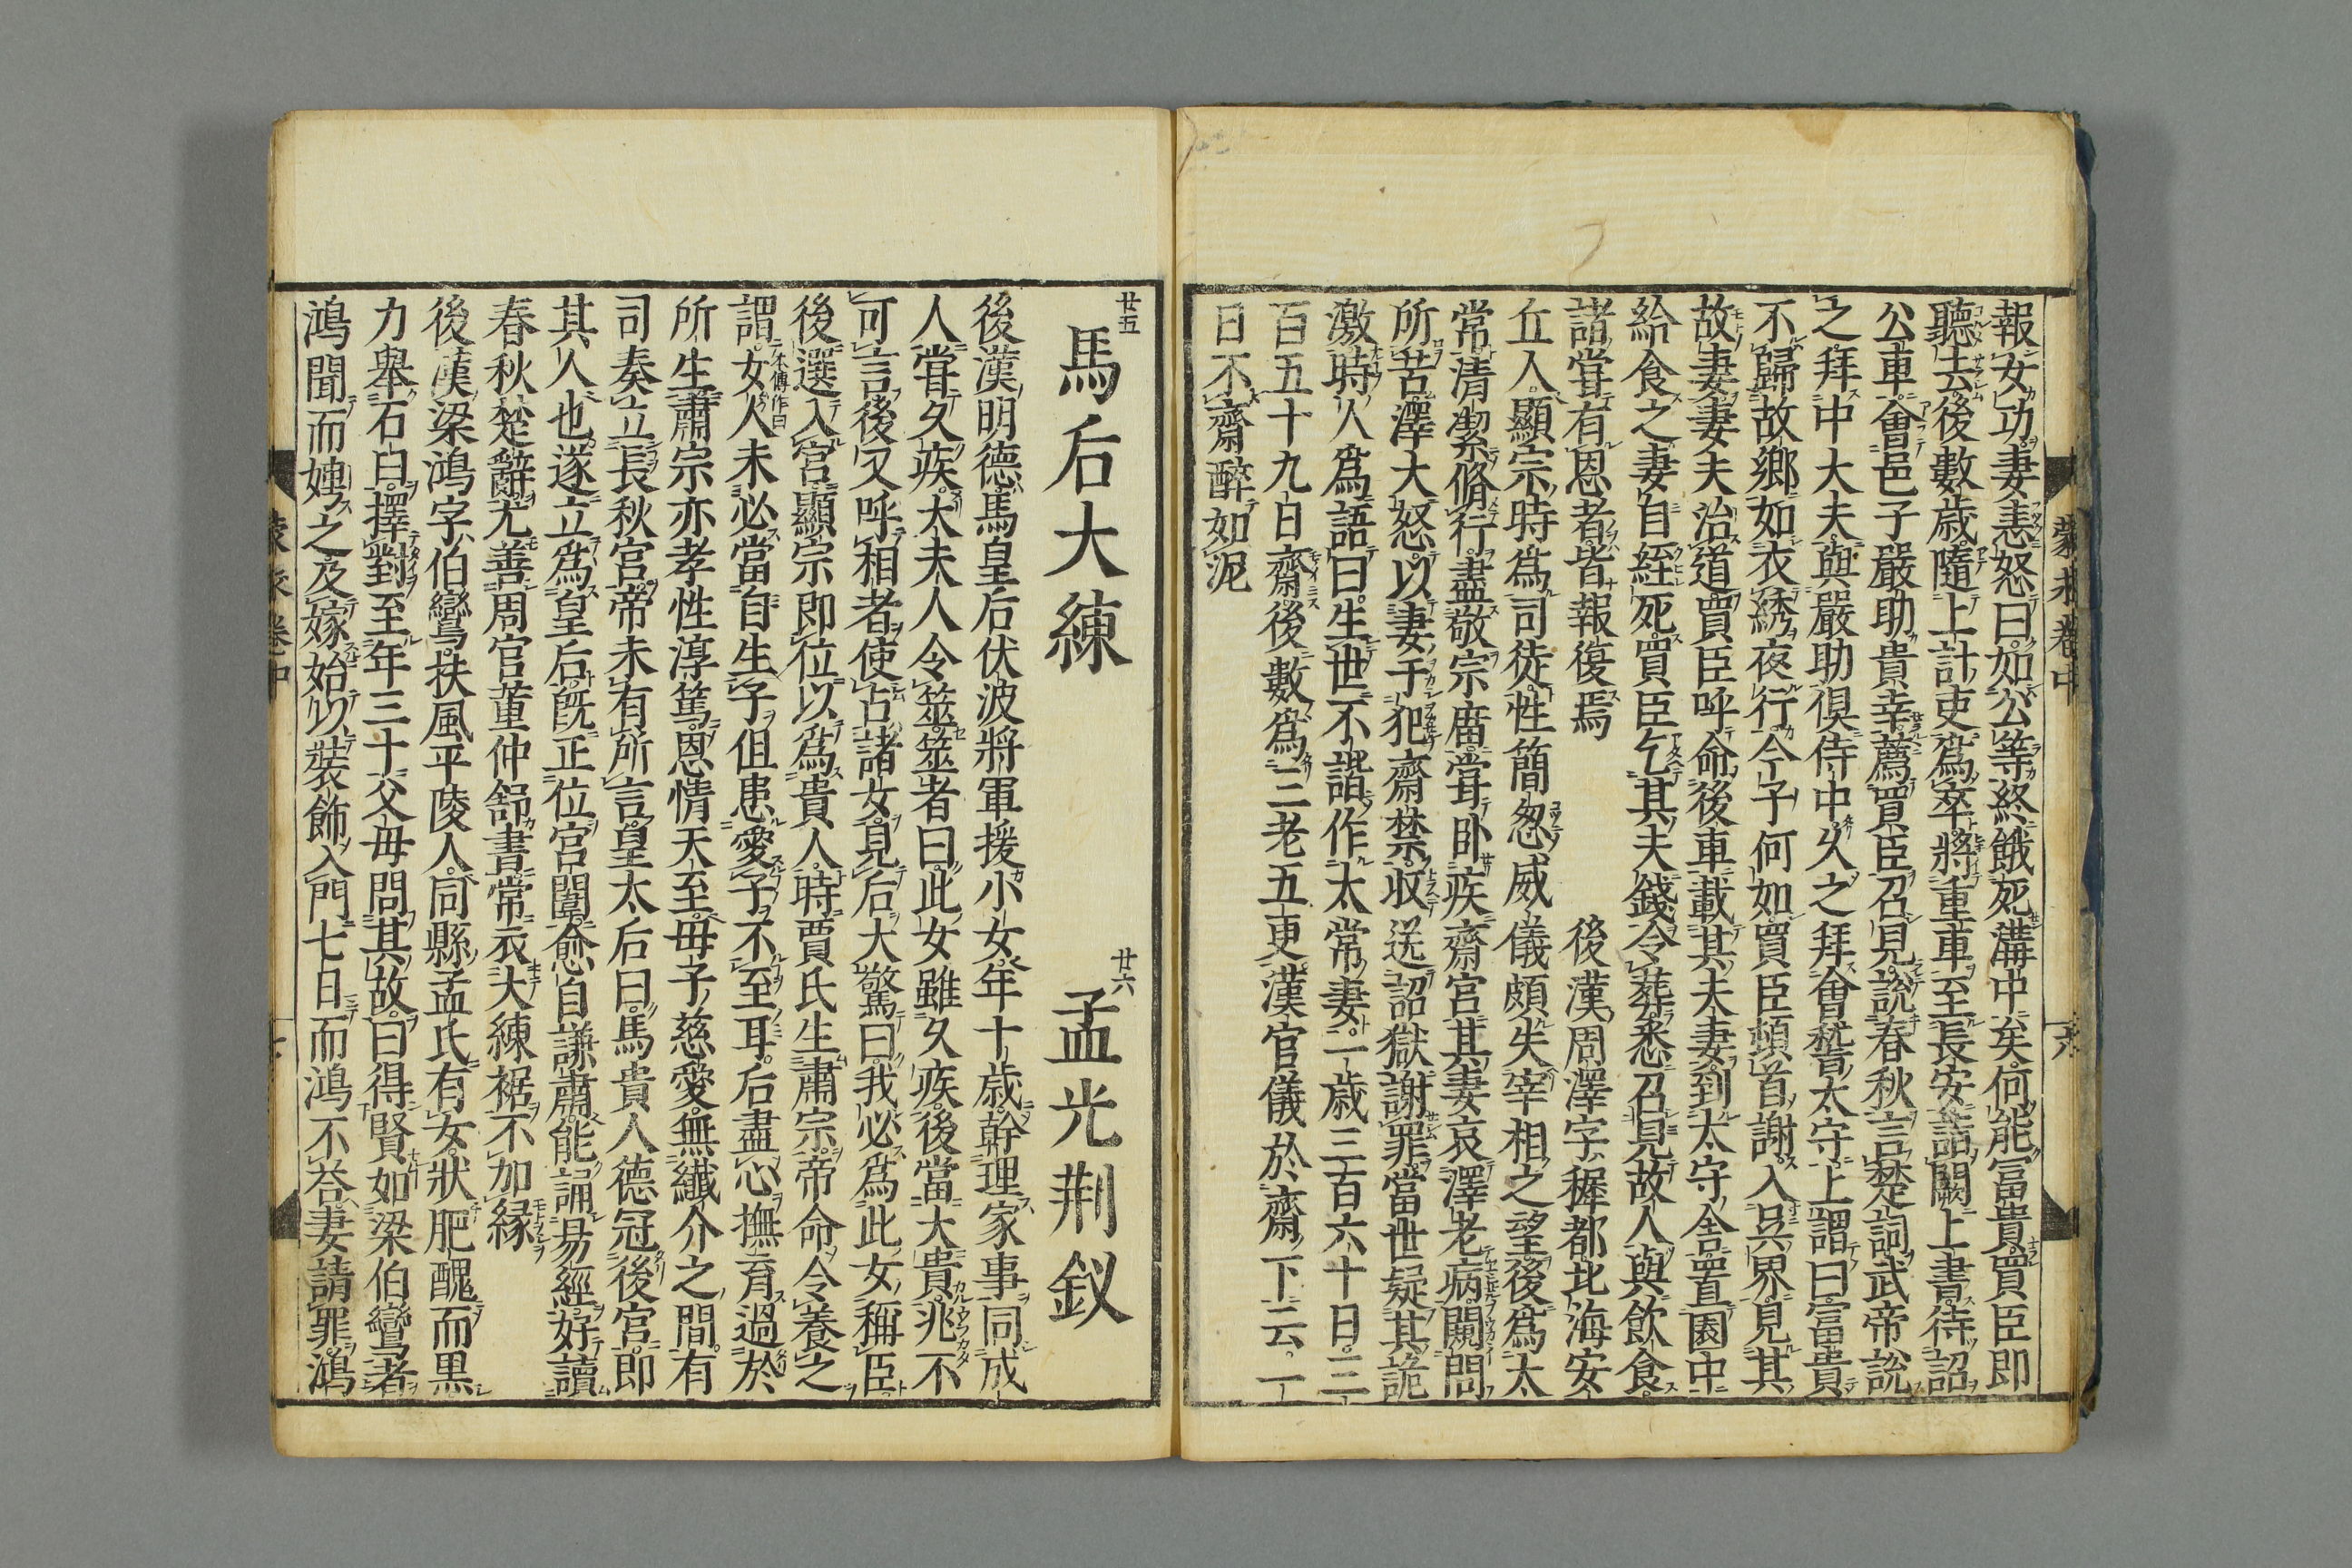 報女功妻恚怒曰如公等終餓死溝中矣何能富貴買臣即
聽去後數歳隨上計吏為卒將重車至長安詣闕上書待詔
公車會邑子嚴助貴幸薦買臣召見說春秋言楚詞武帝說
之拜中大夫與嚴助俱侍中久之拜會稽太守上謂曰富貴
不歸故鄉如衣綉夜行今子何如買臣頓首謝入吳界見其
故妻妻夫治道買臣呼命後車載其夫妻到太守舎置園中
給食之妻自經死買臣乞其夫錢令葬悉召見故人與飲食
諸甞有恩者皆報復焉 後漢周澤字穉都北海安
丘人顯宗時為司徒性簡忽威儀頗失宰相之望後為太
常清潔脩行盡敬宗庿甞卧疾齋宮其妻哀澤老病闚問
所苦澤大怒以妻干犯齋禁収送詔獄謝罪當世疑其詭
激時人為語曰生世不諧作太常妻一歳三百六十日三
百五十九日齋後數為三老五更漢官儀於齋下云一
日不齋醉如泥
蒙求卷中
廿五 馬后大練 廿六 孟光荆釵
後漢明德馬皇后伏波將軍援小女年十歳幹理家事同成
人甞久疾太夫人令筮筮者曰此女雖久疾後當大貴兆不
可言後又呼相者使占諸女見后大驚曰我必為此女稱臣
後選入宮顯宗即位以為貴人時賈氏生肅宗帝命令養之
謂女本傳作曰人未必當自生子但患愛子不至耳后盡心撫育過於
所生肅宗亦孝性淳篤恩情天至母子慈愛無纎介之間有
司奏立長秋宮帝未有所言皇太后曰馬貴人德冠後宮即
其人也遂立為皇后既正位宮闈愈自謙肅能誦易經好讀
春秋楚辭尤善周官董仲舒書常衣大練裾不加緑
後漢梁鴻字伯鸞扶風平陵人同縣孟氏有女狀肥醜而黒
力舉石臼擇對至年三十父母問其故曰得賢如梁伯鸞者
鴻聞而娉之及嫁始以裝飾入門七日而鴻不荅妻請罪鴻